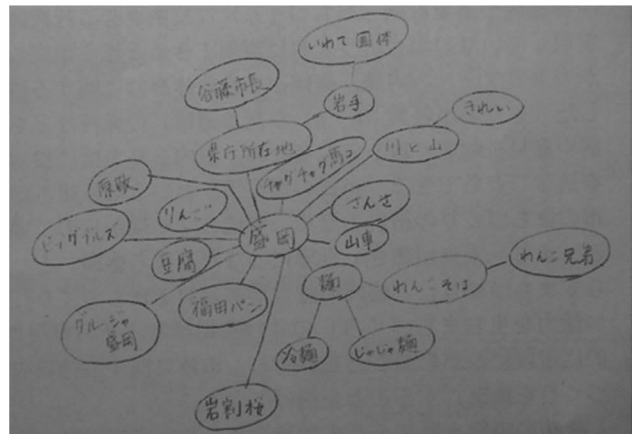 いわて国体
谷藤市長
岩手
きれい
県庁所在地
川と山
チャグチャグ馬コ
原敬
りんご
さんさ
ビッグブルズ
盛岡
山車
豆腐
麺
わんこそば
わんこ兄弟
福田パン
グルージャ
盛岡
冷麺
じゃじゃ麺
岩割桜